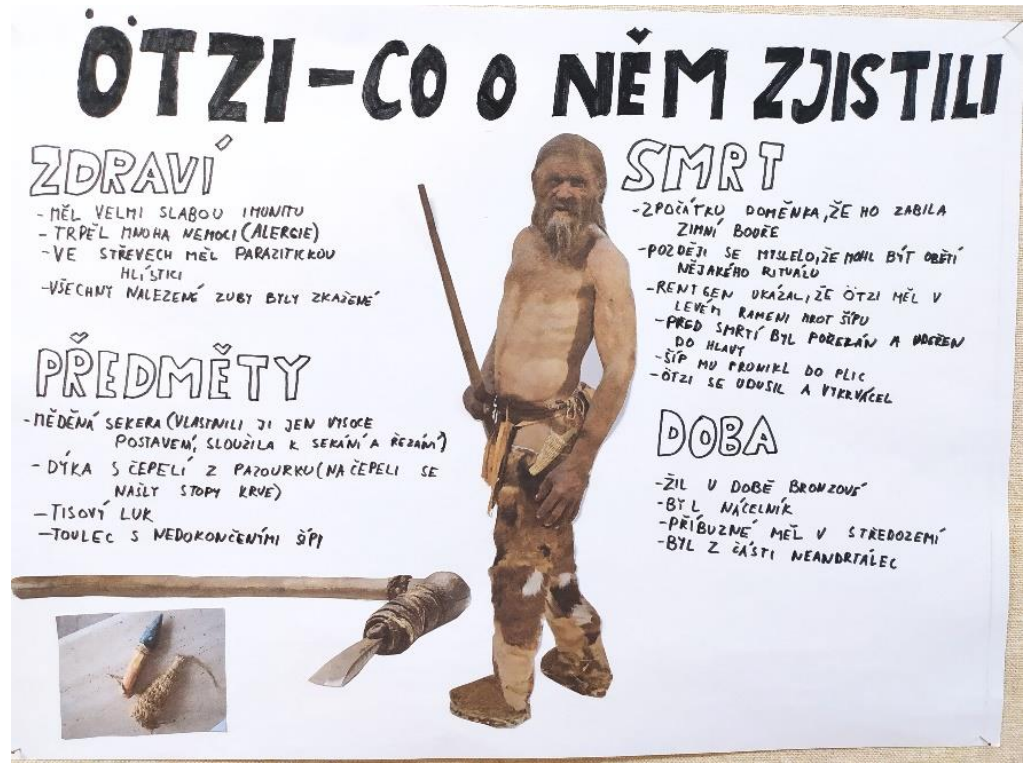 ÖTZI-CO O NĚM ZJISTILI
ZDRAVÍ
-MĚL VELMI SLABOU IMUNITU
-TRPĚL MNOHA NEMOCI (ALERGIE)
-VE STŘEVECH MĚL PARAZITICKOU
HLÍSTICI
-VŠECHNY NALEZENÉ ZUBY BYLY ZKAŽENÉ
PŘEDMĚTY
-MĚDĚNÁ SEKERA (VLASTNILI JI JEN VYSOCE
POSTAVENÍ, SLOUŽILA K SEKÁNÍ A ŘEZÁNÍ)
-DÝKA S ČEPELÍ Z PAZOURKU (NA ČEPELI SE
NAŠLY STOPY KRVE)
-TISOVÝ LUK
-TOULEC S NEDOKONČENÍMI ŠÍPY
SMRT
-ZPOČÁTKU DOMĚNKA, ŽE HO ZABILA
ZIMNÍ BOUŘE
-POZDĚJI SE MYSLELO, ŽE MOHL BÝT OBĚTÍ
NĚJAKÉHO RITUÁLU
-RENTGEN UKÁZAL, ŽE ÖTZI MĚL V
LEVÉM RAMENI HROT ŠÍPU
-PŘED SMRTÍ BYL POŘEZÁN A UDEŘEN
DO HLAVY
-ŠÍP MU PRONIKL DO PLIC
-ÖTZI SE UDUSIL A VYKRVÁCEL
DOBA
-ŽIL V DOBĚ BRONZOVÉ
-BYL NÁČELNÍK
-PŘÍBUZNÉ MĚL V STŘEDOZEMÍ
-BYL Z ČÁSTI NEANDRTÁLEC